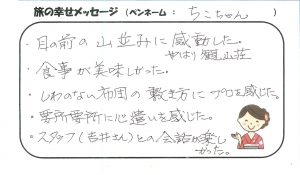 旅の幸せメッセージ（ペンネーム：ちこちゃん）
・目の前の山並みに感動した。
やはり観山荘
・食事が美味しかった。
・しわのない布団の敷き方にプロを感じた。
・要所要所に心遣いを感じた。
・スタッフ（吉井さん）との会話が楽し
かった。